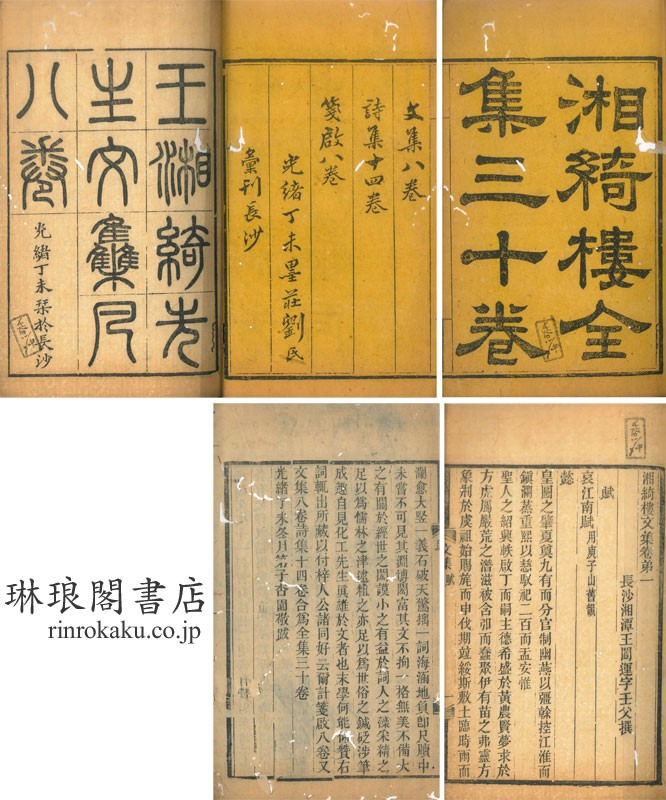 湘綺樓全
集三十卷
文集八卷
詩集十四卷
箋啟八卷
光緒丁未墨莊劉氏
彙刊長沙
王湘綺先
生文集凡
八卷
光緒丁未栞於長沙
湘綺樓文集卷弟一
長沙湘潭王闓運字壬父撰
賦
哀江南賦 用庾子山舊韻
懿
皇圖之肇夐奠九有而分官制幽燕以彊榦控江淮而
鎭瀾蒸重熙以慈馭祀二百而孟安惟
聖人之紹興軼啟丁而嗣主德希盛於黃農賢夢求於
方虎厲嚴荒之潛滋被含而蠢聚伊有苗之弗靈方
象制於虞祖始賜旄而申伐期竝綏斯敷土臨時雨而
文集 賦
瀾愈大竪一義石破天驚摛一詞海涵地負卽尺牘中
未嘗不可見其淵博閎富其文不拘一格無美不備大
之有關於經世之閎謨小之有益於詞人之藻采精之
足以爲儒林之津逮粗之亦足以爲世俗之鍼砭涉筆
成趣自見化工先生眞雄於文者也末學何能贊右
詞輒出所藏以付梓人公諸同好云爾計箋啟八卷又
文集八卷詩集十四卷合爲全集三十卷
光緒丁未冬月子杏圃敬跋
琳琅閣書店
rinrokaku.co.jp